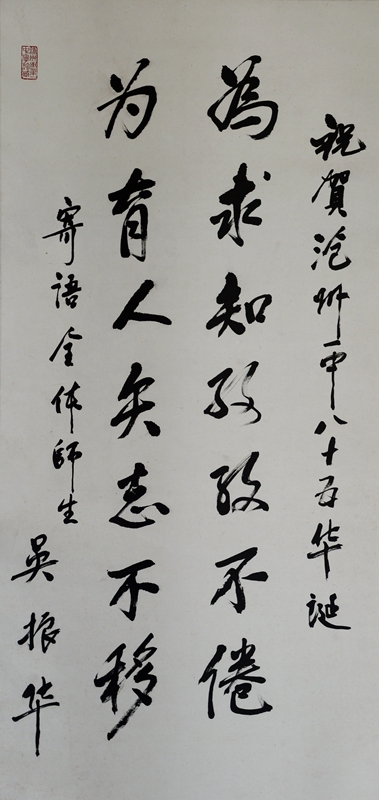 祝賀滄州一中八十五华誕
為求知孜孜不倦
为育人矢志不移
寄語全体師生
吴振华